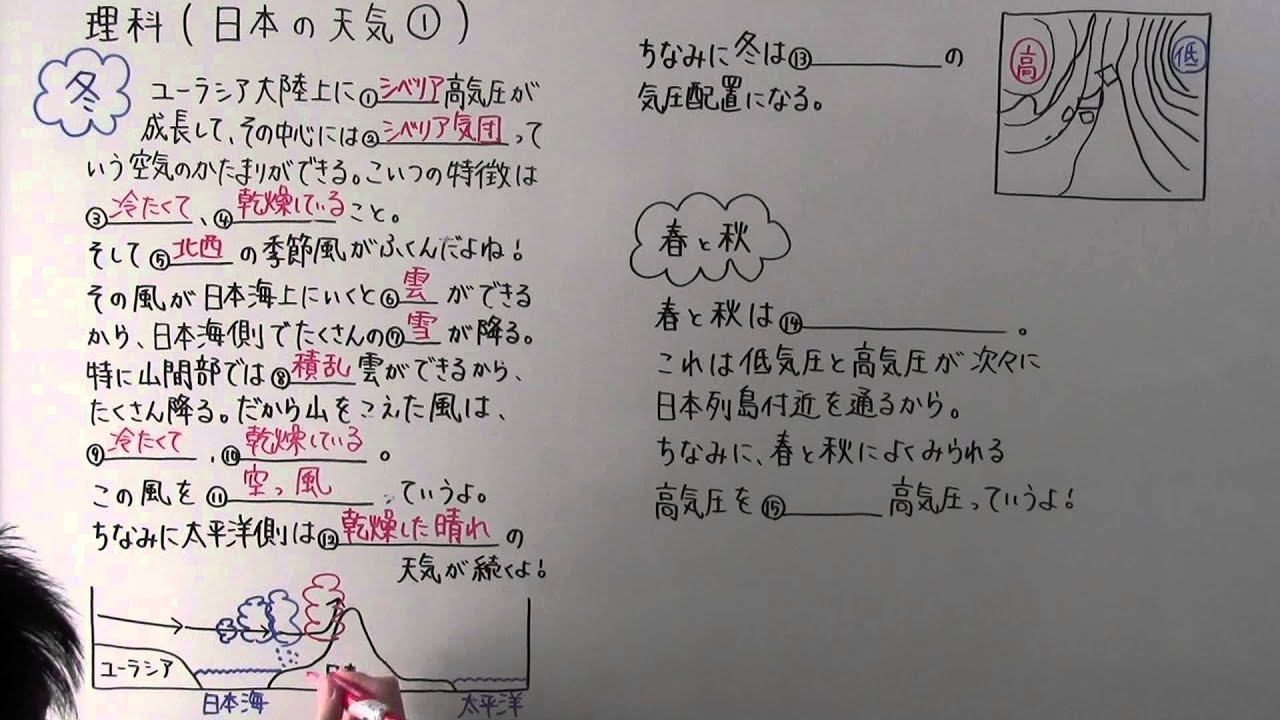 理科(日本の天気①)
冬
ユーラシア大陸上に①シベリア高気圧が
成長して、その中心には②シベリア気団って
いう空気のかたまりができる。こいつの特徴は
③冷たくて、④乾燥していること。
そして⑤北西の季節風がふくんだよね!
その風が日本海上にいくと⑥雲ができる
から、日本海側でたくさんの⑦雪が降る。
特に山間部では⑧積乱雲ができるから、
たくさん降る。だから山をこえた風は、
⑨冷たくて、⑩乾燥している。
この風を⑪空っ風っていうよ。
ちなみに太平洋側は⑫乾燥した晴れの
天気が続くよ!
ユーラシア
日本海
太平洋
ちなみに冬は⑬の
気圧配置になる。
高
低
春と秋
春と秋は⑭。
これは低気圧と高気圧が次々に
日本列島付近を通るから。
ちなみに、春と秋によくみられる
高気圧を⑮高気圧っていうよ!